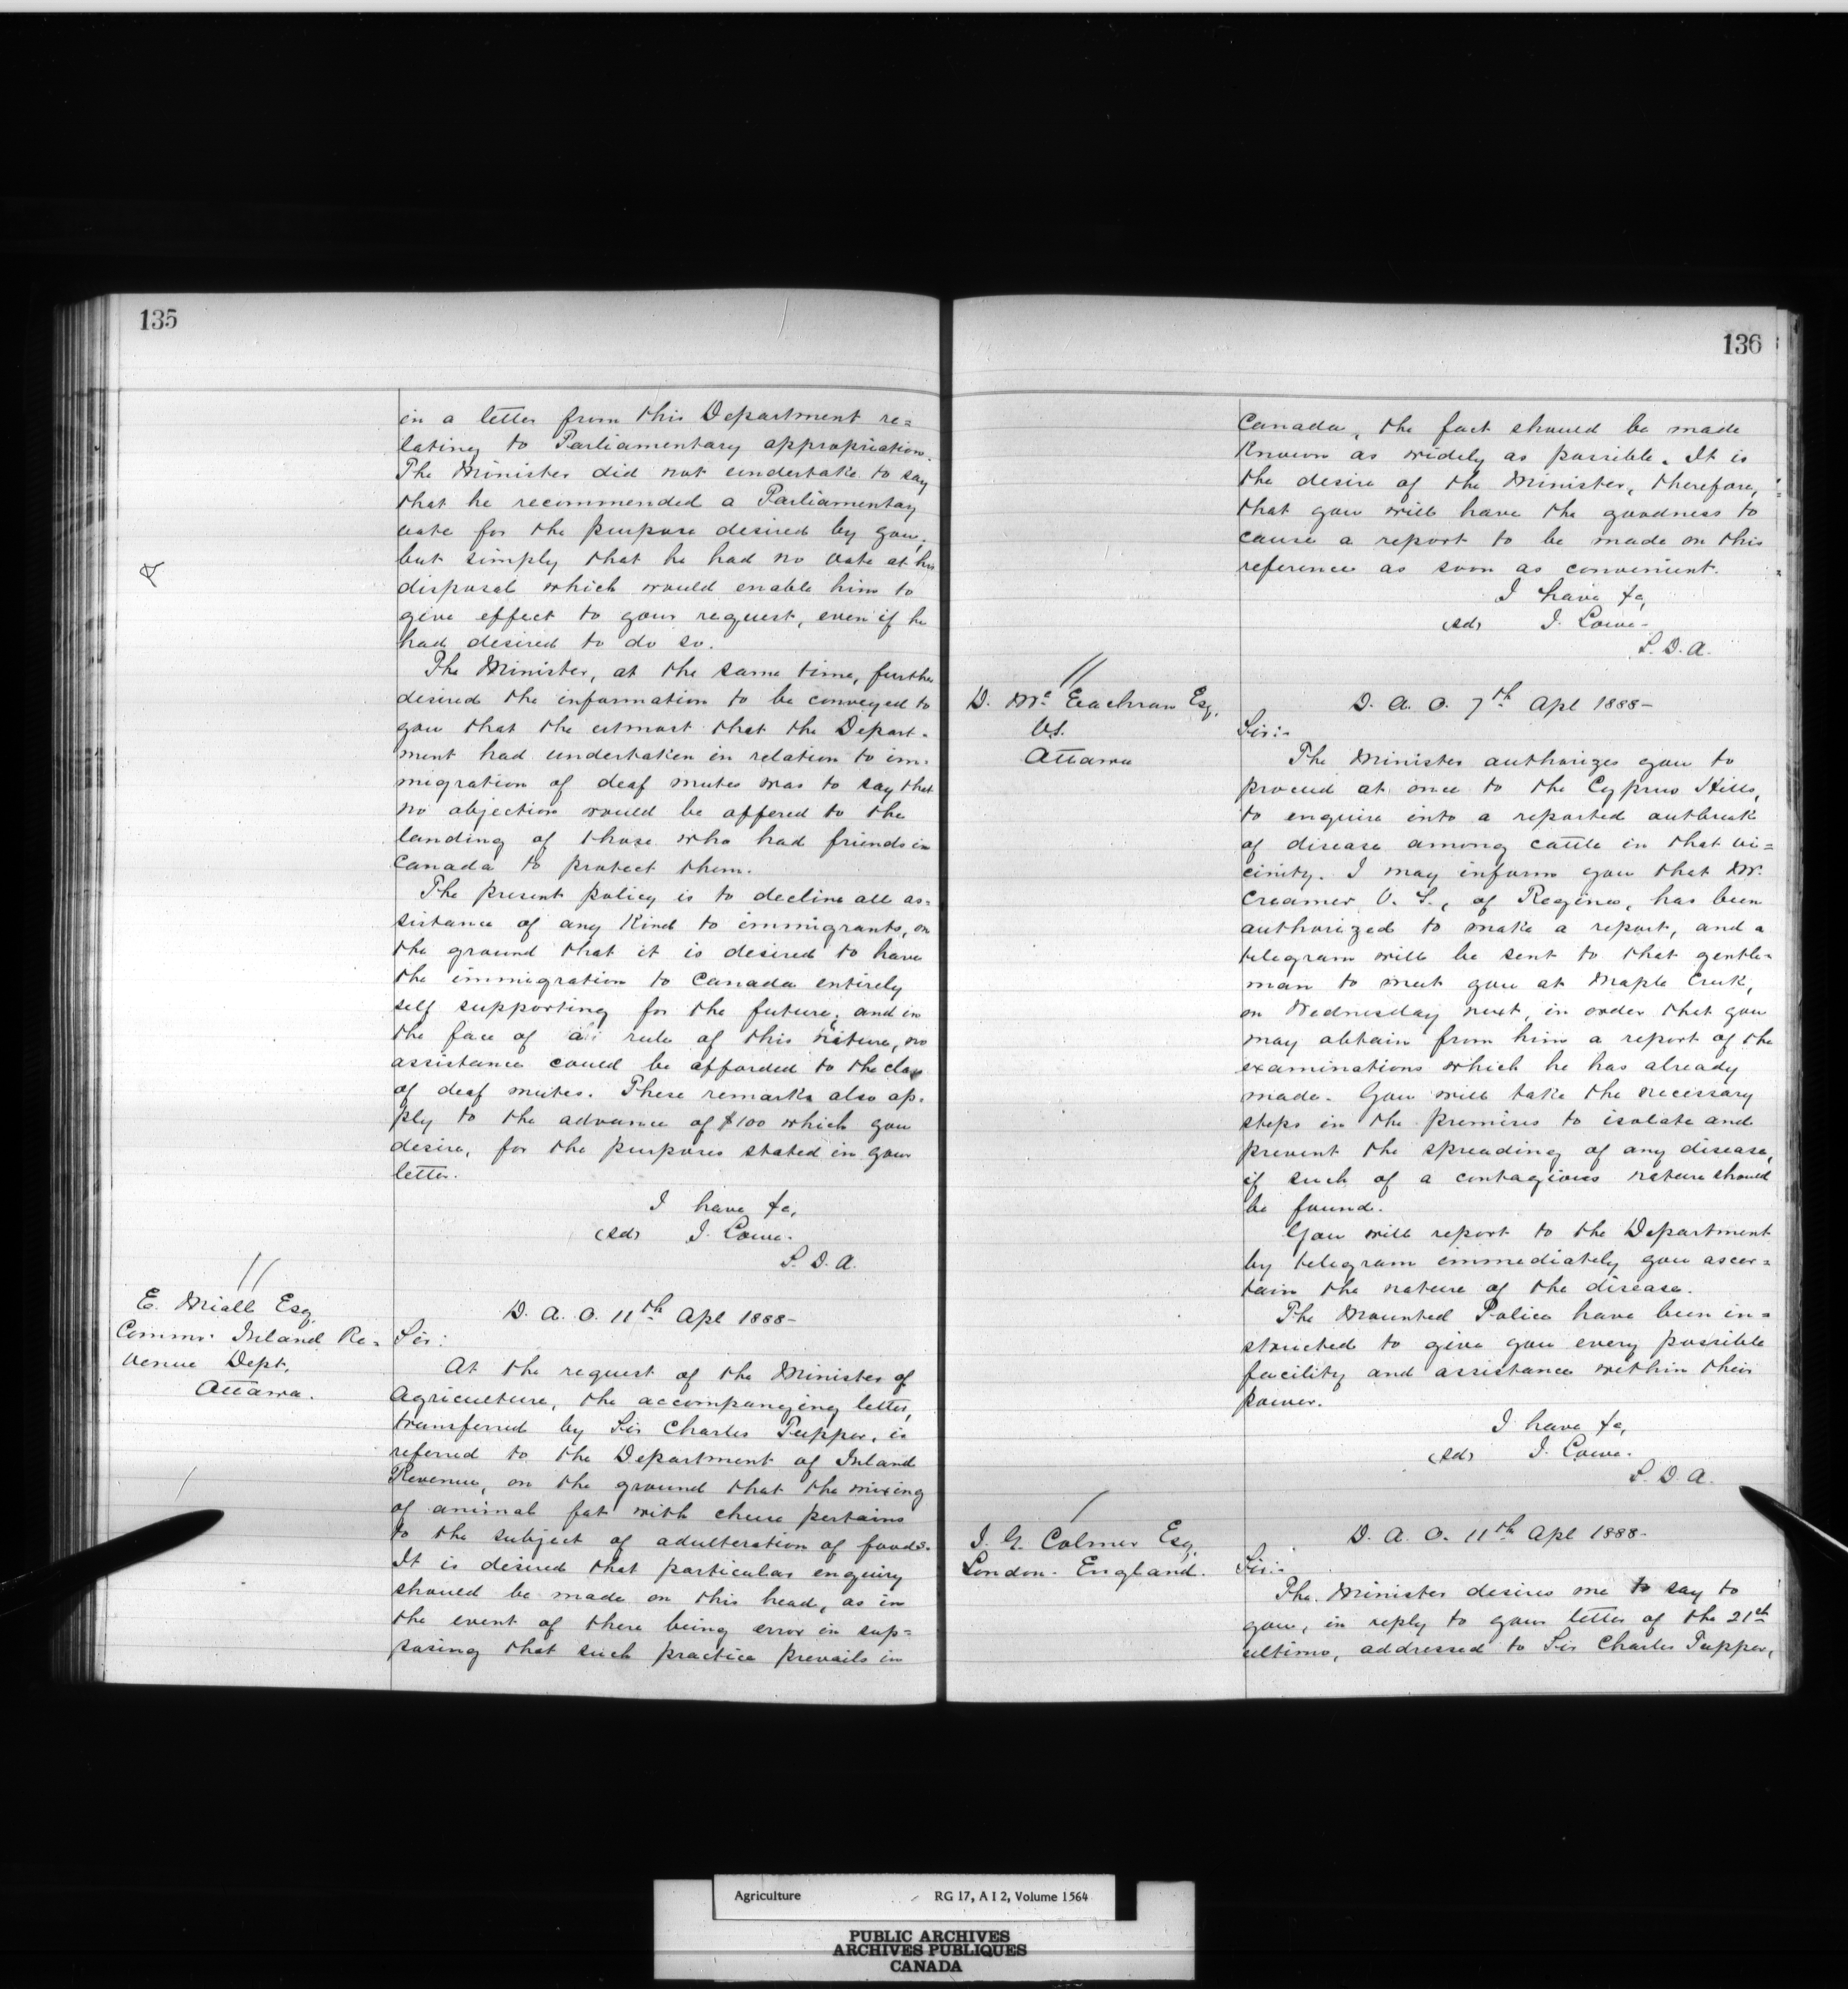 135
in a letter from this Department re=
lating to Parliamentary appropriation.
The Minister did not undertake to say
that he recommended a Parliamentary
vote for the purpose desired by you;
but simply that he had no vote at his
disposal which would enable him to
give effect to your request, even if he
had desired to do so.
The Minister, at the same time, further
desired the information to be conveyed to
you that the utmost that the Depart-
ment had undertaken in relation to im-
migration of deaf mutes was to say that
no objection would be offered to the
landing of those who had friends in
Canada to protect them.
The present policy is to decline all as-
sistance of any kind to immigrants, on
the ground that it is desired to have
the immigration to Canada entirely
self supporting for the future; and in
the face of a rule of this nature, no
assistance could be afforded to the class
of deaf mutes. These remarks also ap-
ply to the advance of $100 which you
desire, for the purposes stated in your
letter.
I have &c,
(sd) J. Lowe.
S. D. A.
E. Miall Esq.
Commr. Inland Re-
venue Dept.
Ottawa.
D. A. O. 11th Apl 1888-
Sir:
At the request of the Minister of
Agriculture, the accompanying letter,
transferred by Sir Charles Tupper, is
referred to the Department of Inland
Revenue, on the ground that the mixing
of animal fat with cheese pertains
to the subject of adulteration of foods.
It is desired that particular enquiry
should be made on this head, as in
the event of there being error in sup=
posing that such practice prevails in
136
Canada, the fact should be made
known as widely as possible. It is
the desire of the Minister, therefore,
that you will have the goodness to
cause a report to be made on this
reference as soon as convenient.
I have &c,
(sd) J. Lowe-
S. D. A.
D. Mc Eachran Esq.
V.S.
Ottawa
D. A. O. 7th Apl 1888-
Sir:-
The Minister authorizes you to
proceed at once to the Cypress Hills,
to enquire into a reported outbreak
of disease among cattle in that vi=
cinity. I may inform you that Mr.
Creamer V. S., of Regina, has been
authorized to make a report, and a
telegram will be sent to that gentle-
man to meet you at Maple Creek,
on Wednesday next, in order that you
may obtain from him a report of the
examinations which he has already
made. You will take the necessary
steps in the premises to isolate and
prevent the spreading of any disease,
if such of a contagious nature should
be found.
You will report to the Department
by telegram immediately you ascer=
tain the nature of the disease.
The Mounted Police have been in=
structed to give you every possible
facility and assistance within their
power.
I have &c,
(sd) J. Lowe.
S. D. A.
J. G. Colmer Esq.
London. England.
D. A. O. 11th Apl 1888-
Sir:-
The Minister desires me to say to
you, in reply to your letter of the 21st
ultimo, addressed to Sir Charles Tupper,
Agriculture RG 17, A I 2, Volume 1564
PUBLIC ARCHIVES
ARCHIVES PUBLIQUES
CANADA